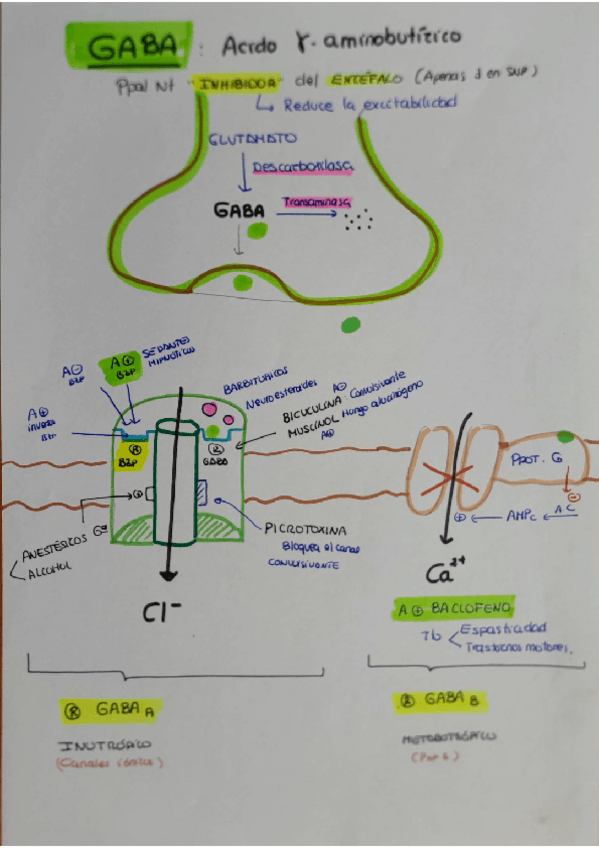 GABA : Acido γ-aminobutírico
Ppal Nt "INHIBIDOR" del ENCÉFALO (Apenas J en SNP)
↳ Reduce la exictabilidad
GLUTAMATO
Descarboxilasa
GABA
Transaminasa
A⊖
BZP
A⊕
BZP
SEDANTES
HIPNÓTICOS
A⊕
inverso
BZP
BARBITURICOS
Neuroesteroides
A⊖
BICUCULINA: Convulsivante
MUSCINOL Hongo alucinógeno
A⊕
Ⓡ
BZP
Ⓡ
GABA
ANESTÉSICOS Gª
ALCOHOL
⊕
PICROTOXINA
Bloquea el canal
CONVULSIVANTE
Cl-
PROT. G
⊖
AC
AMPc
⊕
Ca²⁺
A⊕ BACLOFENO
Tb
Espasticidad
Trastornos motores.
Ⓡ GABA A
INOTRÓPICO
(Canales iónicos)
Ⓡ GABA B
METOBOTRÓPICO
(Prot G)